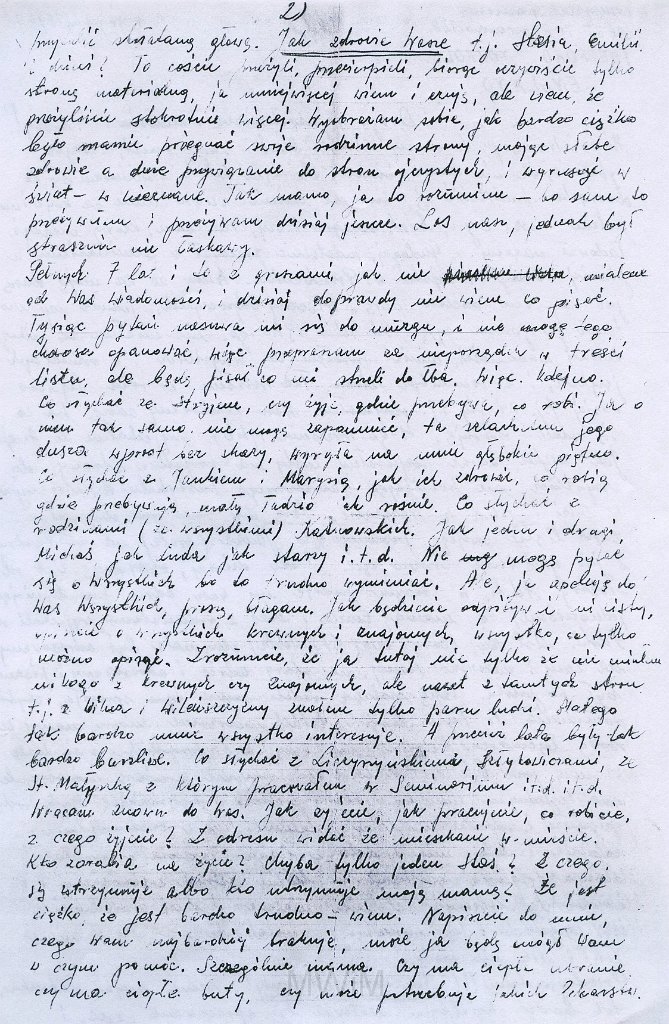 2)
skołataną głową. Jak zdrowie Wasze t.j. Stasia, Emilii,
i dzieci? To coście przeżyli, przecierpieli, biorąc oczywiście tylko
stronę materialną, ja mniejwięcej wiem i czuję, ale wiem, że
przeżyliście stokrotnie więcej. Wyobrażam sobie, jak bardzo ciężko
było mamie pożegnać swoje rodzinne strony, mając słabe
zdrowie a duże przywiązanie do stron ojczystych, i wyruszyć w
świat – w nieznane. Tak mamo, ja to rozumiem – bo sam to
przeżywałem i przeżywam dzisiaj jeszcze. Los nasz, jednak był
strasznie nie łaskawy.
Pełnych 7 lat i to z groszami, jak nie miałem
od Was wiadomości, i dzisiaj doprawdy nie wiem co pisać.
Tysiąc pytań nasuwa mi się do mózgu, i nie mogę tego
chaosu opanować, więc przepraszam za nieporządek w treści
listu, ale będę pisał co mi strzeli do łba. Więc. Kolejno.
Co słychać ze stryjem, czy żyje, gdzie przebywa, co robi. Ja o
nim tak samo nie mogę zapomnieć, ta szlachetna Jego
dusza wprost bez skazy, wyryła na mnie głębokie piętno.
Co słychać z Jankiem i Marysią, jak ich zdrowie, co robią
gdzie przebywają, mały Tadzio jak rośnie. Co słychać z
rodzinami (ze wszystkimi) Jak jeden i drugi,
Michaś jak Luda jak starzy i.t.d. Nie mogę pytać
się o wszystkich bo to trudno wymieniać. Ale, ja apeluję do
Was Wszystkich, proszę, błagam. Jak będziecie odpisywać mi listy,
opiszcie o wszystkich krewnych i znajomych, wszystko, co tylko
można opisać. Zrozumcie, że ja tutaj nie tylko że nie miałem
nikogo z krewnych czy znajomych, ale nawet z tamtych stron
t.j. z Wilna i Wileńszczyzny znałem tylko paru ludzi. Dlatego
tak bardzo mnie wszystko interesuje. A przecież lata były tak
bardzo burzliwe. Co słychać z ze
St. Małyską z którym pracowałem w Seminarium i.t.d. i.t.d.
Wracam znowu do Was. Jak żyjecie, jak pracujecie, co robicie,
z czego żyjecie? Z adresu widać że mieszkacie w mieście.
Kto zarabia na życie? Chyba tylko jeden Staś? Z czego
się utrzymuje albo kto utrzymuje moją mamę? Że jest
ciężko, że jest bardzo trudno – wiem. Napiszcie do mnie,
czego Wam najbardziej brakuje, może ja będę mógł Wam
w czym pomóc. Szczególnie mama. Czy ma ciepłe ubranie
czy ma ciepłe buty, czy może potrzebuje jakich lekarstw.